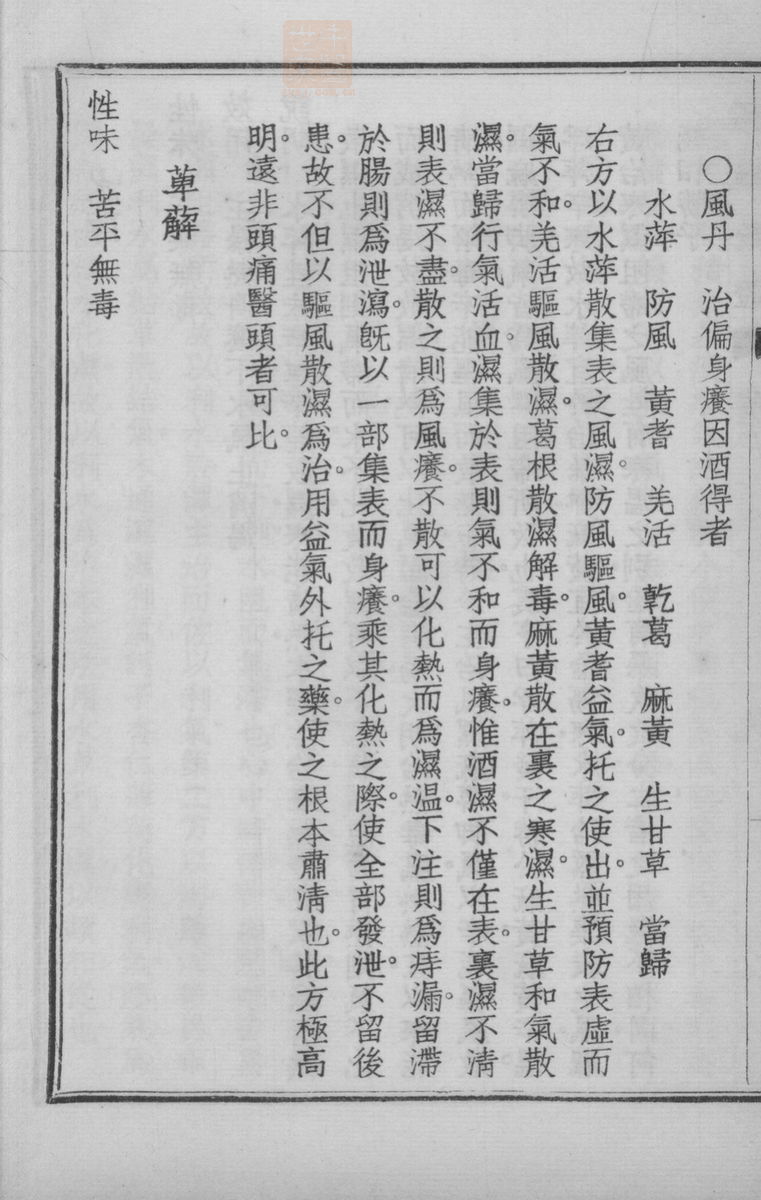 ○風丹　治偏身癢因酒得者
水萍　防風　黃耆　羌活　乾葛　麻黃　生甘草　當歸
右方以水萍散集表之風濕。防風驅風。黃耆益氣。托之使出。並預防表虛而
氣不和。羌活驅風散濕。葛根散濕解毒。麻黃散在裏之寒濕。生甘草和氣散
濕。當歸行氣活血。濕集於表則氣不和而身癢。惟酒濕不僅在表。裏濕不清
則表濕不盡。散之則爲風癢。不散可以化熱而爲濕温。下注則爲痔漏。留滯
於腸則爲泄瀉。旣以一部集表而身癢。乘其化熱之際。使全部發泄。不留後
患。故不但以驅風散濕爲治。用益氣外托之藥。使之根本肅淸也。此方極高
明。遠非頭痛醫頭者可比。
萆薢
性味　苦平無毒